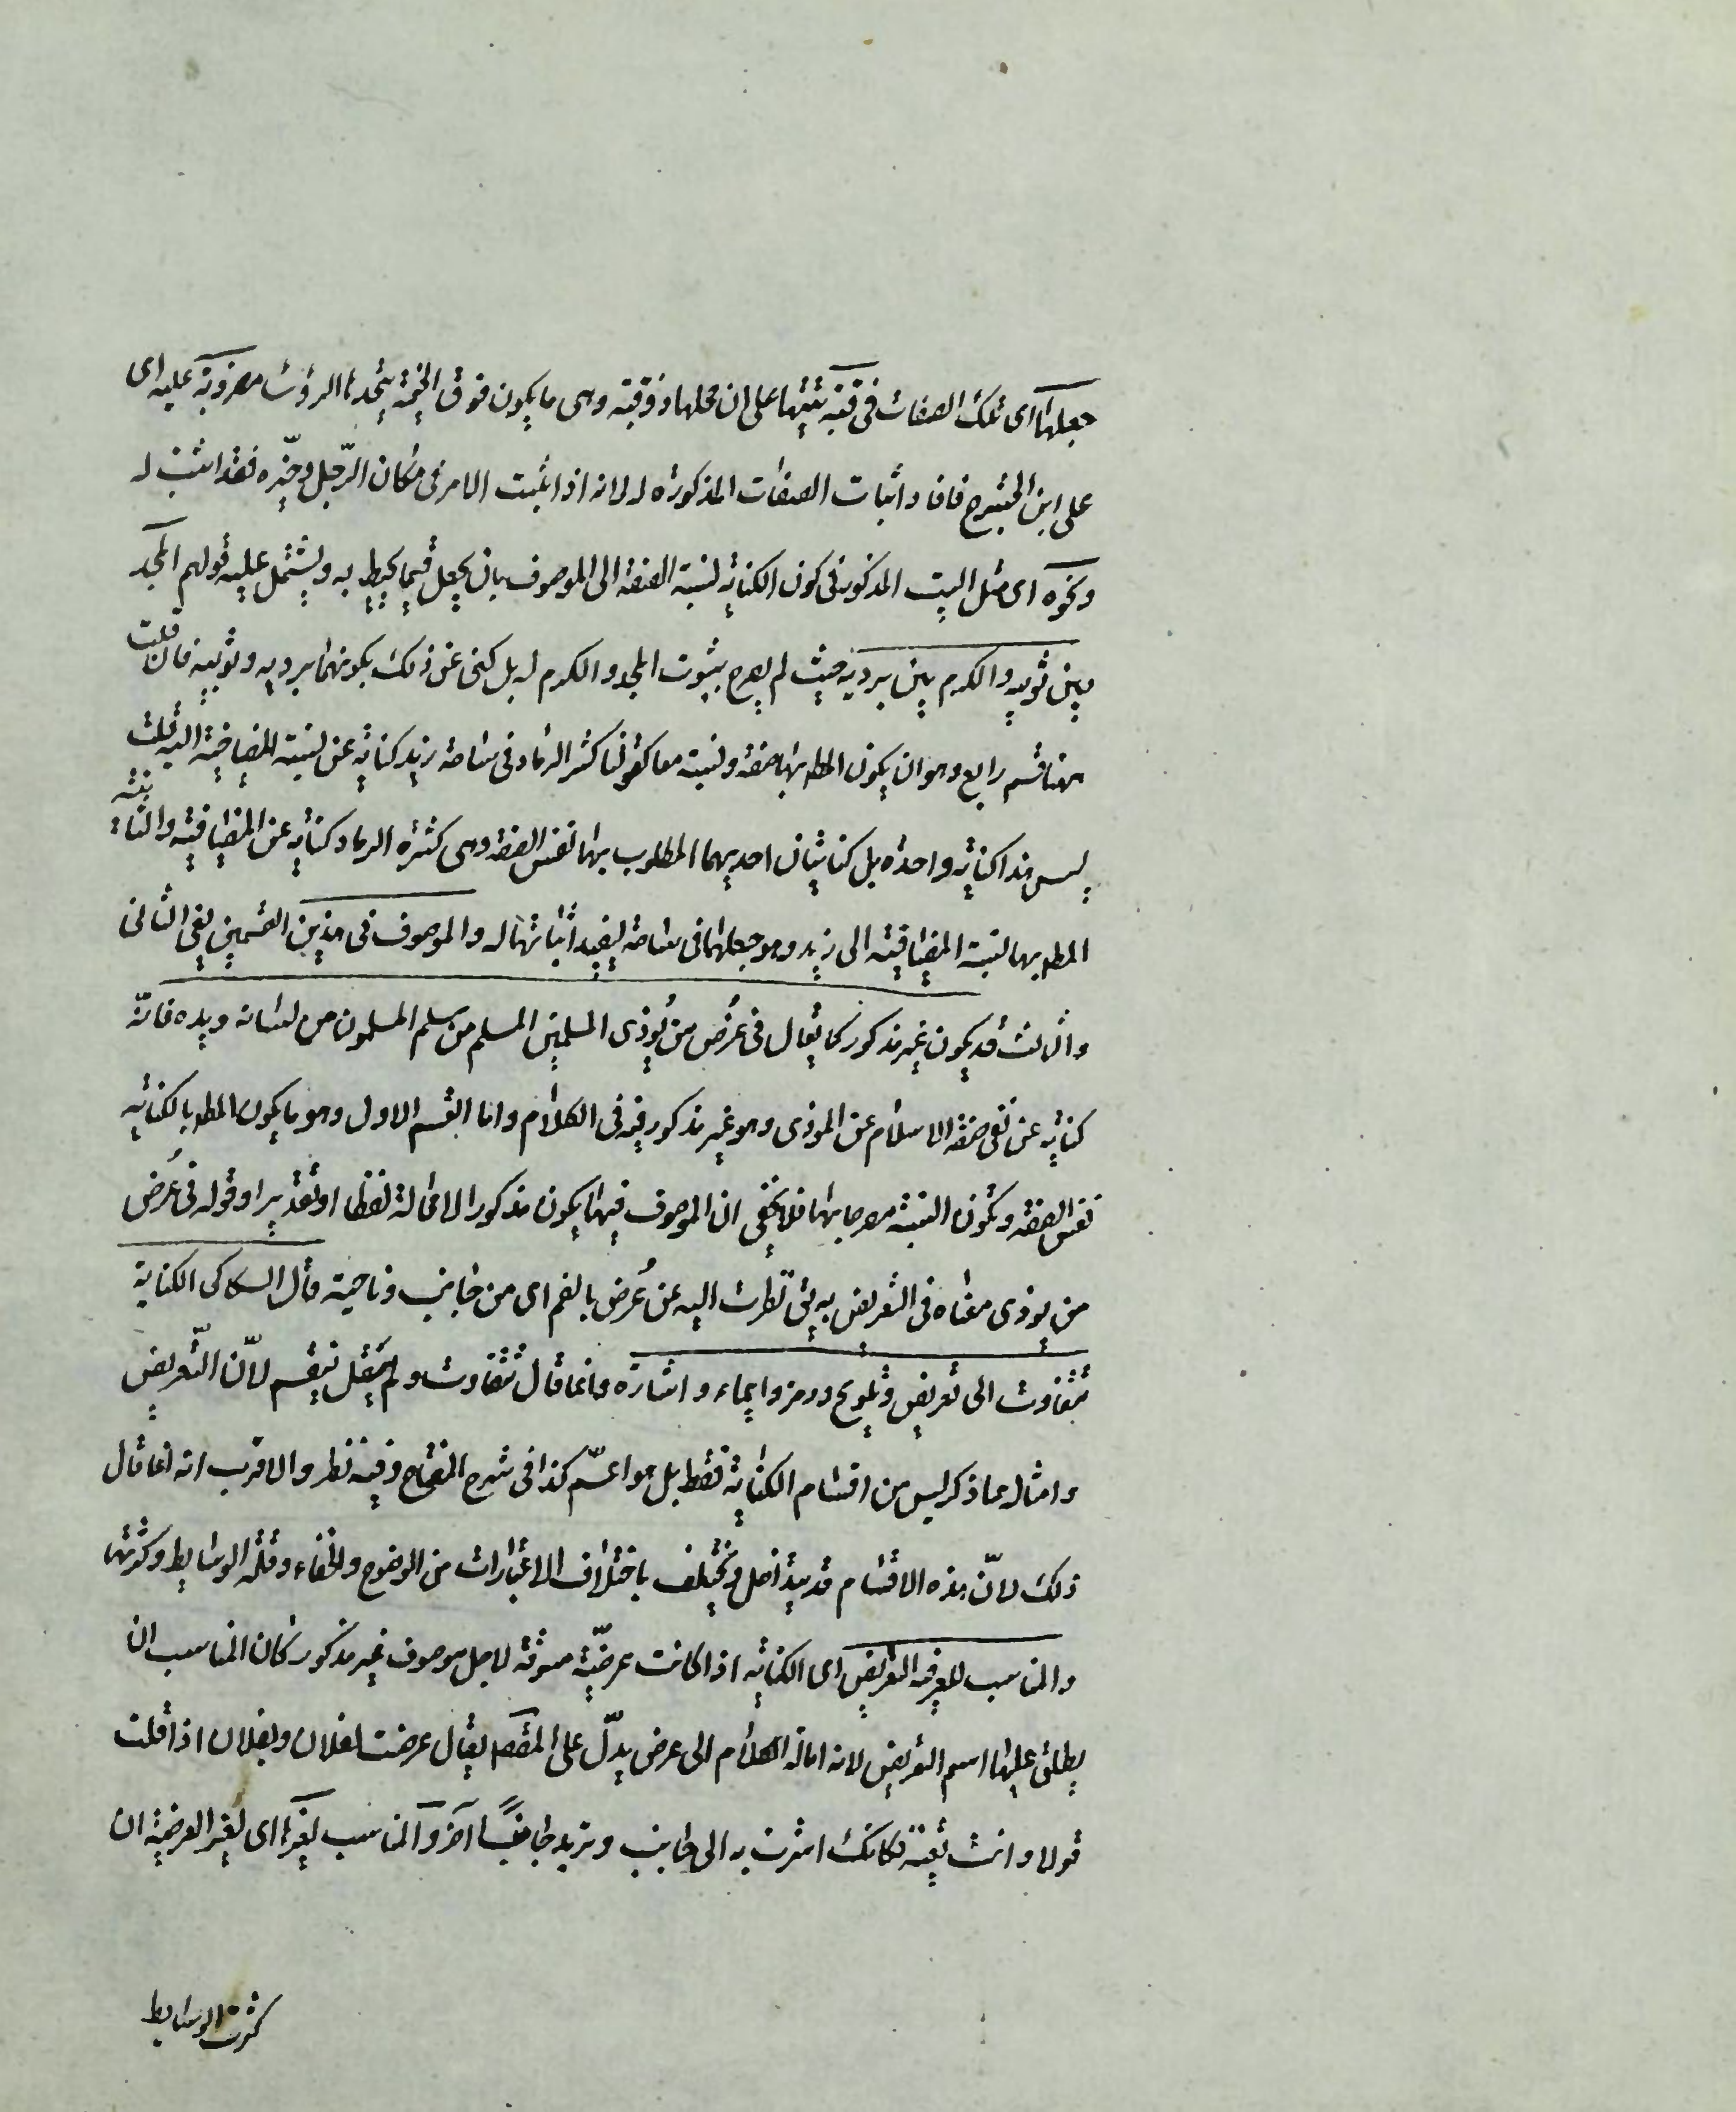 جعلها اى تلك الصفات فى قبة تنبيها على ان محلها ذو قبة وهى ما يكون فوق الخيمة يتخذها الرؤسا مضروبة عليه اى
على ابن الحشرج فافاد اثبات الصفات المذكورة له لانه اذا اثبت الامر فى مكان الرّجل وحيّزه فقد اثبت له
ونحوه اى مثل البيت المذكور فى كون الكناية لنسبة الصفة الى الموصوف بان يجعل فيما يحيط به ويشتمل عليه قولهم المجد
بين ثوبيه والكرم بين برديه حيث لم يصرح بثبوت المجد والكرم له بل كنى عن ذلك بكونهما بين برديه وثوبيه فان قلت
ههنا قسم رابع وهو ان يكون المط بها صفة ونسبة معا كقولنا كثر الرماد فى ساحة زيد كناية عن نسبة المضيافية اليه قلت
ليس هذا كناية واحدة بل كنايتان احديهما المطلوب بها نفس الصفة وهى كثرة الرماد كناية عن المضيافية والثانية
المط بها نسبة المضيافية الى زيد وهو جعلها فى ساحة ليفيد اثباتها له والموصوف فى هذين القسمين يعنى الثانى
والثالث قد يكون غير مذكور كما يقال فى عُرض من يُؤذى المسلمين المسلم من سلم المسلمون من لسانه ويده فانّه
كناية عن نفى صفة الاسلام عن الموذى وهو غير مذكور فى الكلام واما القسم الاول وهو ما يكون المط بالكناية
نفس الصفة وتكون النسبة مصرحا بها فلا يخفى ان الموصوف فيها يكون مذكورا لا محالة لفظا او تقديرا وقوله فى عُرض
من يوذى معناه فى التعريض به يق نظرت اليه عن عُرض بالضم اى من جانب وناحية قال السكاكى الكناية
تتفاوت الى تعريض وتلويح ورمز وايماء واشارة وانما قال تتفاوت ولم يقل تنقسم لانّ التّعريض
وامثاله مما ذكر ليس من اقسام الكناية فقط بل هو اعمّ كذا فى شرح المفتاح وفيه نظر والاقرب انه انما قال
ذلك لانّ هذه الاقسام قد يتداخل ويختلف باختلاف الاعتبارات من الوضوح والخفاء وقلة الوسايط وكثرتها
والمناسب للعرضية التعريض اى الكناية اذا كانت عرضيّة مسوقة لاجل موصوف غير مذكور كان المناسب ان
يطلق عليها اسم التعريض لانه امالة الكلام الى عرض يدلّ على المقصود يقال عرضت لفلان وبفلان اذا قلت
قولا وانت تعنيه فكانك اشرت به الى جانب وتريد جانبًا آخر والمناسب لغيرها اى لغير العرضية ان
كثرت الوسايط